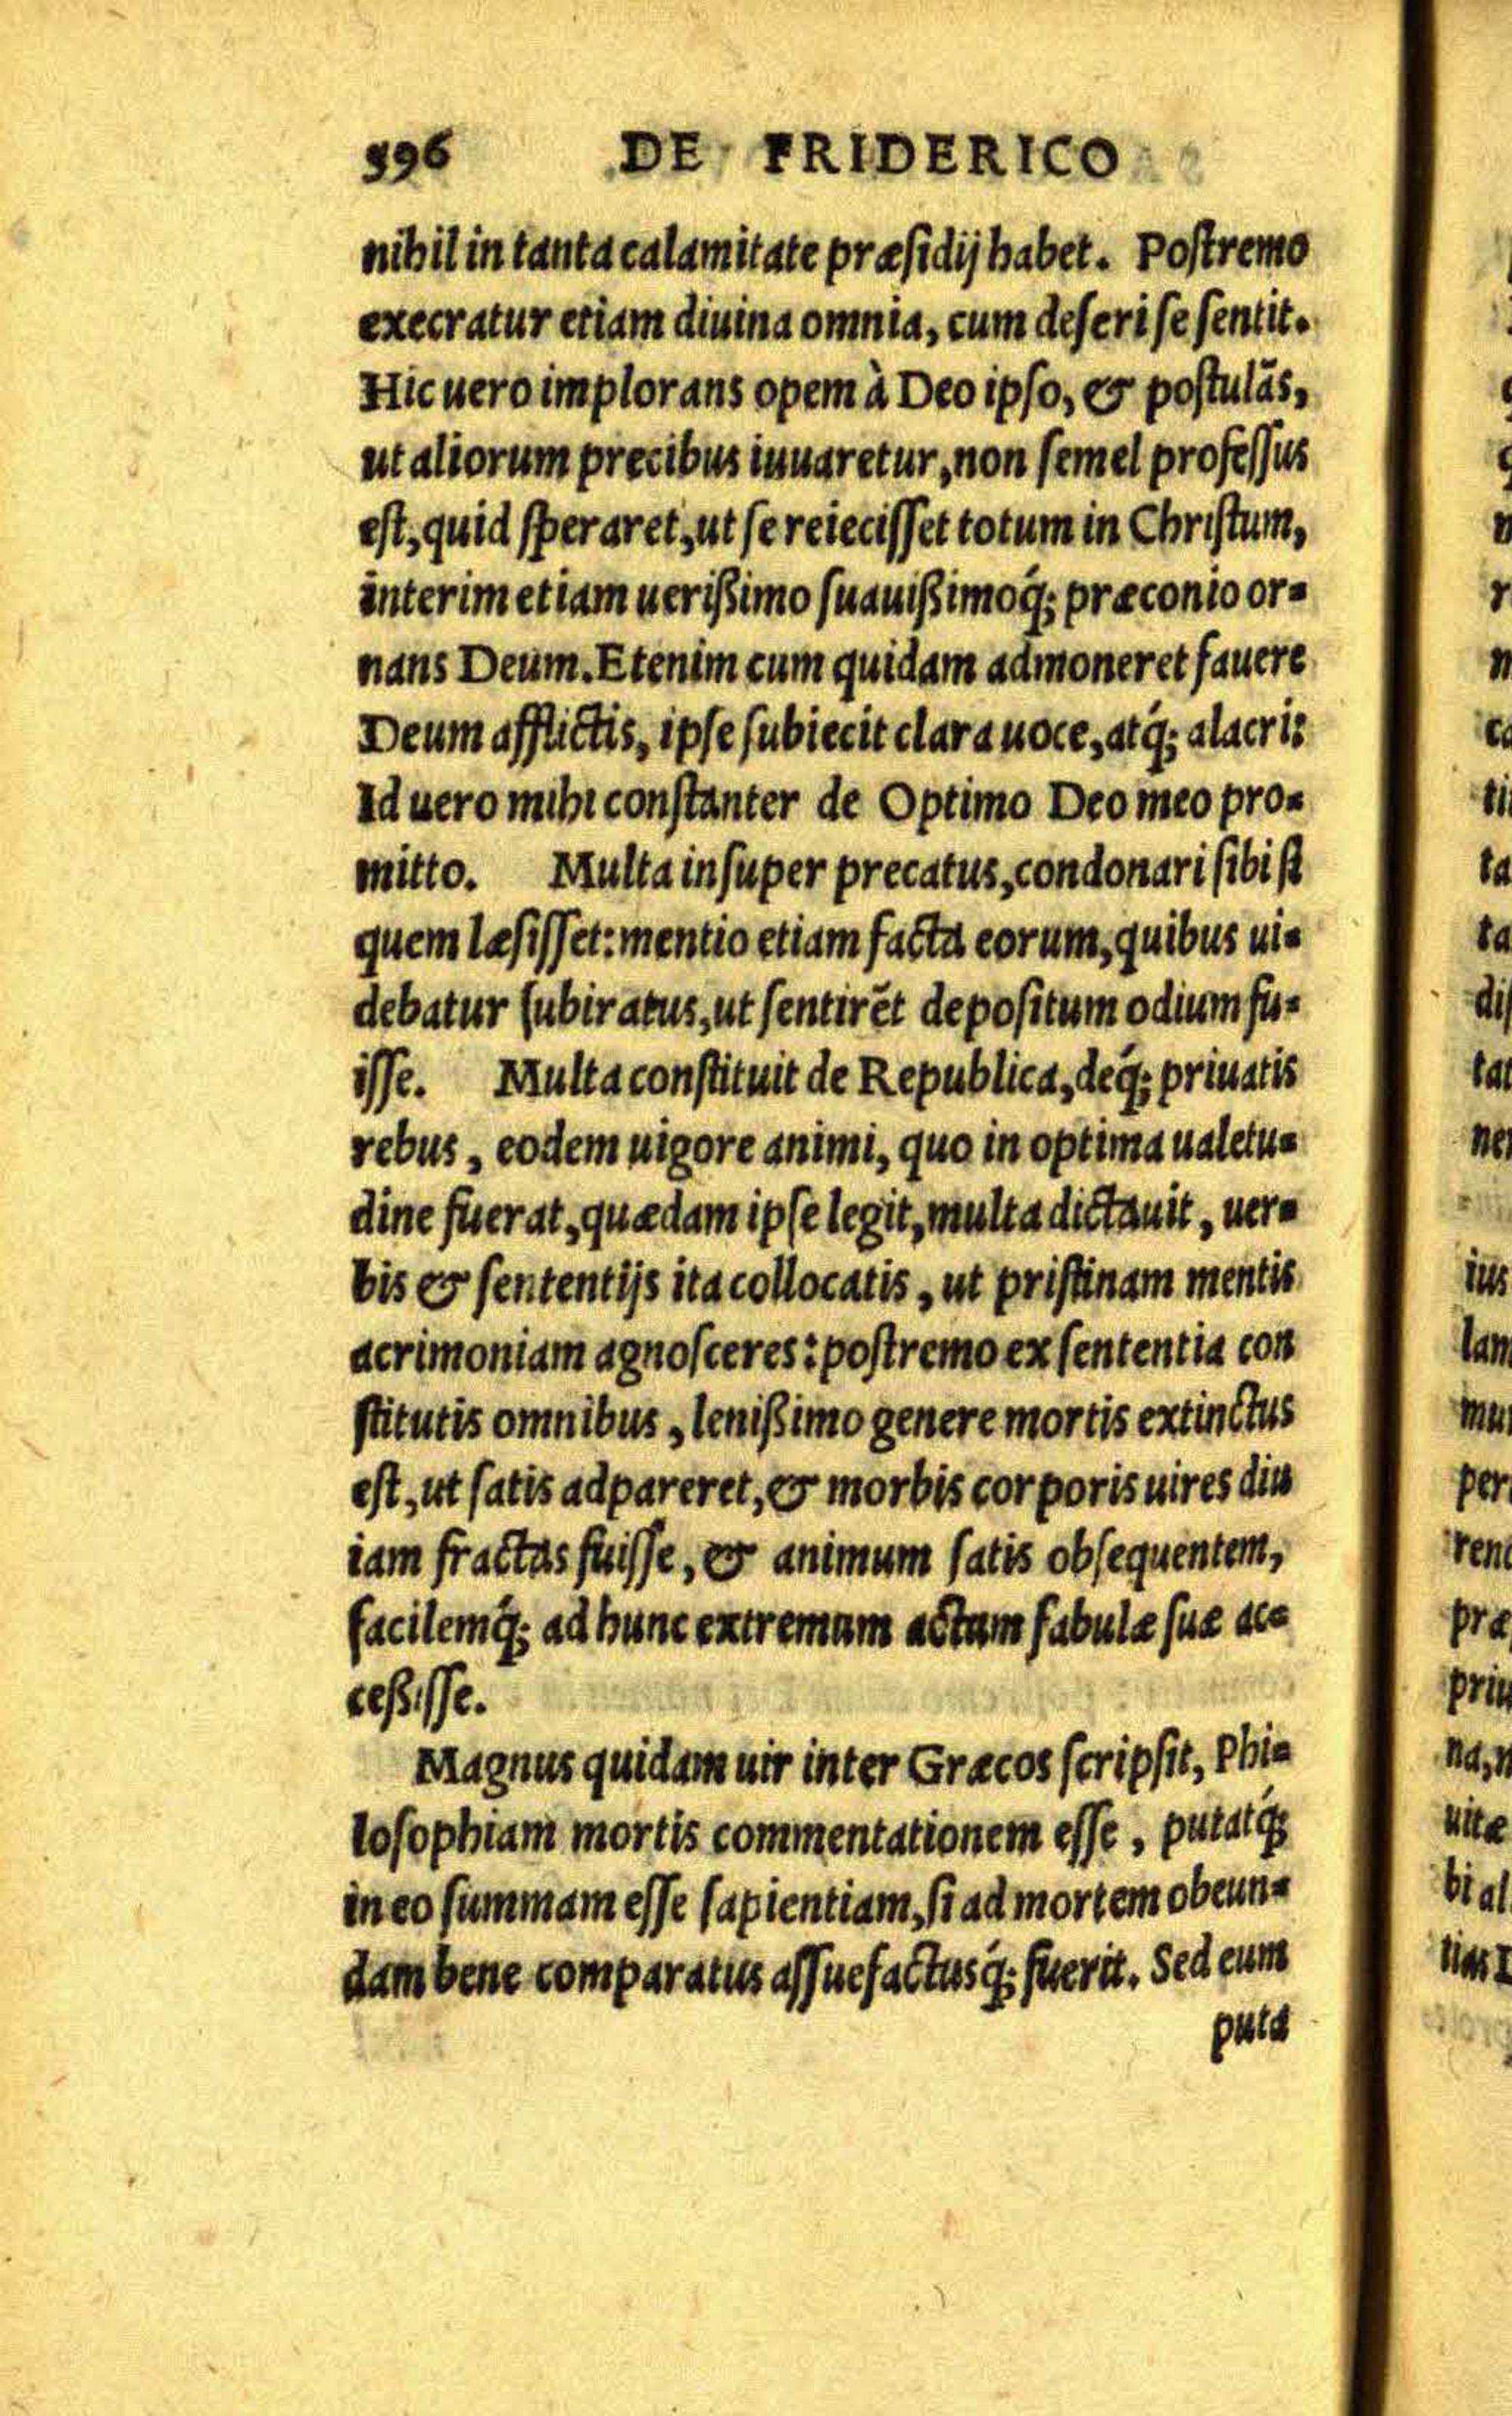 396 DE FRIDERICO
nihil in tanta calamitate præſidij habet. Poſtremo
execratur etiam diuina omnia, cum deſeri ſe ſentit.
Hic uero implorans opem à Deo ipſo, & poſtulãs,
ut aliorum precibus iuuaretur, non ſemel profeſſus
eſt, quid ſperaret, ut ſe reieciſſet totum in Chriſtum,
interim etiam uerißimo ſuauißimoq́; præconio or-
nans Deum. Etenim cum quidam admoneret fauere
Deum afflictis, ipſe ſubiecit clara uoce, atq́; alacri:
Id uero mihi conſtanter de Optimo Deo meo pro-
mitto. Multa inſuper precatus, condonari ſibi ſi
quem læſiſſet: mentio etiam facta eorum, quibus ui-
debatur ſubiratus, ut ſentirẽt depoſitum odium fu-
iſſe. Multa conſtituit de Republica, deq́; priuatis
rebus, eodem uigore animi, quo in optima ualetu-
dine fuerat, quædam ipſe legit, multa dictauit, uer-
bis & ſententijs ita collocatis, ut priſtinam mentis
acrimoniam agnoſceres: poſtremo ex ſententia con
ſtitutis omnibus, lenißimo genere mortis extinctus
eſt, ut ſatis adpareret, & morbis corporis uires diu
iam fractas fuiſſe, & animum ſatis obſequentem,
facilemq́; ad hunc extremum actum fabulæ ſuæ ac-
ceßiſſe.
Magnus quidam uir inter Græcos ſcripſit, Phi-
loſophiam mortis commentationem eſſe, putatq́;
in eo ſummam eſſe ſapientiam, ſi ad mortem obeun-
dam bene comparatus aſſuefactusq́; fuerit. Sed eum
puta